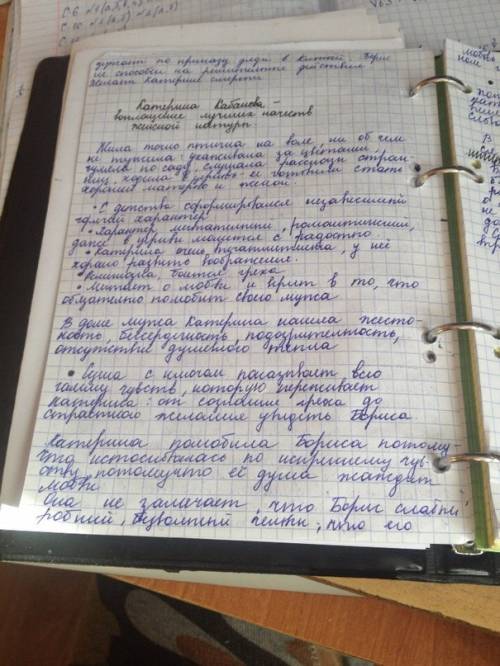 уезжает по приказу дяди в Кяхту. Борис
не способен на решительные действия
желает Катерине смерти
Катерина Кабанова –
воплощение лучших качеств
женской натуры.
Жила точно птичка на воле, ни об чём
не тужила: ухаживала за цветами,
гуляла по саду, слушала рассказы стран-
ниц, ходила в церковь. Её готовили стать
хорошей матерью и женой.
• С детства сформировался независимый
горячий характер.
• Характер мечтательный, романтический,
даже в церкви молится с радостью.
• Катерина очень впечатлительна, у неё
хорошо развито воображение.
боится греха
• Мечтает о любви и верит в то, что
обязательно полюбит своего мужа.
В доме мужа Катерина нашла жесто-
кость, бессердечность, подозрительность,
отсутствие душевного тепла
• Сцена с ключом показывает всю
гамму чувств, которую переживает
Катерина: от сознания греха до
страстного желания увидеть Бориса.
Катерина полюбила Бориса потому-
что истосковалась по искреннему чув-
ству, потомучто её душа жаждет
любви
Она не замечает, что Борис слабый
робкий, безвольный человек, что его
С 6.
С 10